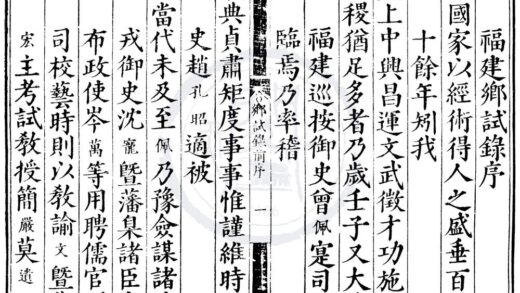 福建鄉試錄序
國家以經術得人之盛垂百
十餘年矧我
上中興昌運文武徵才功施
稷猶足多者乃歲壬子又大
福建巡按御史曾佩寔司
臨焉乃率稽
鄉試錄前序 一
典貞肅矩度事事惟謹維時
史趙孔昭適被
當代未及至佩乃豫僉謀諸
戎御史沈寵暨藩臬諸臣
布政使岑萬等用聘儒官
司校藝時則以教諭文暨
宏主考試教授簡嚴莫遺